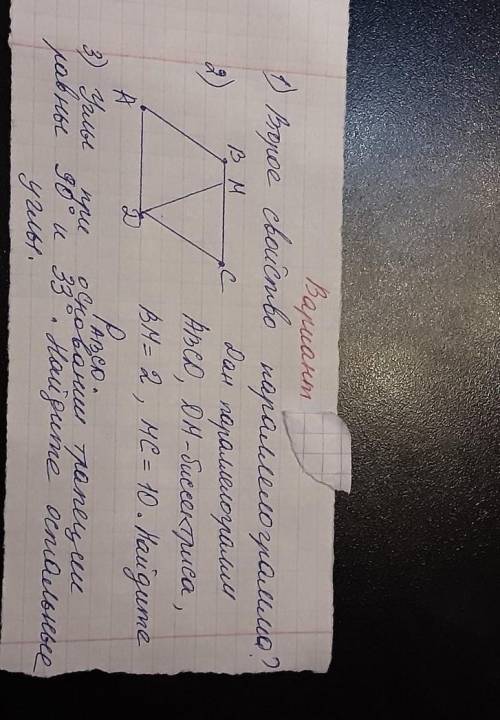 Вариант
1) Второе свойство параллелограмма?
2) Дан параллелограмм
ABCD, DM-биссектриса,
BM = 2, MC = 10. Найдите
P ABCD.
A B M C D
3) Углы при основании трапеции
равны 90° и 33°. Найдите остальные
углы.